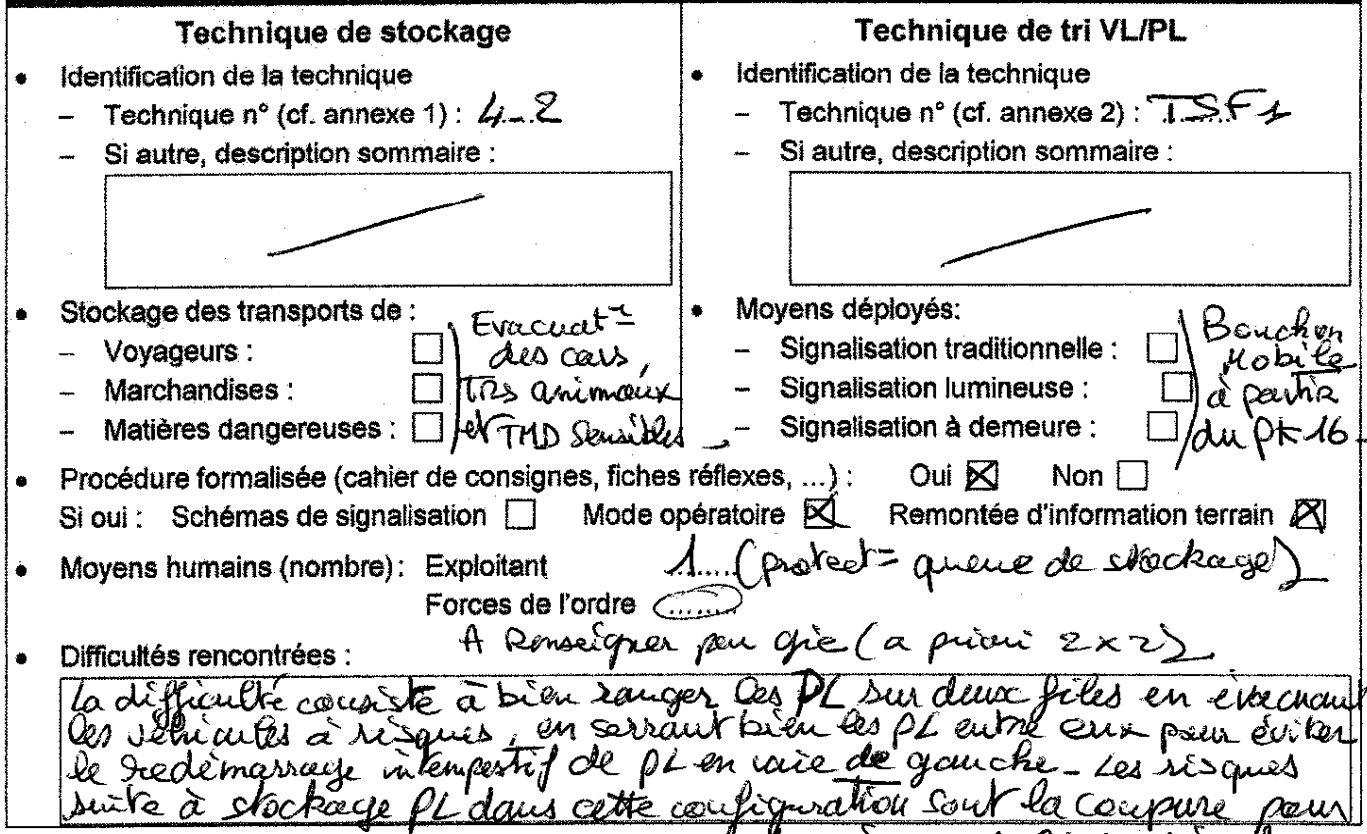 Technique de stockage
• Identification de la technique
– Technique n° (cf. annexe 1) : 4-2
– Si autre, description sommaire :
• Stockage des transports de :
– Voyageurs :
– Marchandises :
– Matières dangereuses :
Evacuat°
des cars,
TRS animaux
et TMD Sensibles
Technique de tri VL/PL
• Identification de la technique
– Technique n° (cf. annexe 2) : TSF1
– Si autre, description sommaire :
• Moyens déployés:
– Signalisation traditionnelle :
– Signalisation lumineuse :
– Signalisation à demeure :
Bouchon
Mobile
à partir
du PK 16
• Procédure formalisée (cahier de consignes, fiches réflexes, ...) : Oui ☒ Non ☐
Si oui : Schémas de signalisation ☐ Mode opératoire ☒ Remontée d'information terrain ☒
• Moyens humains (nombre) : Exploitant 1 (protect° queue de stockage)
Forces de l'ordre ........
A Renseigner par gie (a priori 2x2)
• Difficultés rencontrées :
La difficulté consiste à bien ranger les PL sur deux files en évacuant
les véhicules à risques, en serrant bien les PL entre eux pour éviter
le redémarrage intempestif de PL en voie de gauche - Les risques
suite à stockage PL dans cette configuration sont la coupure pour